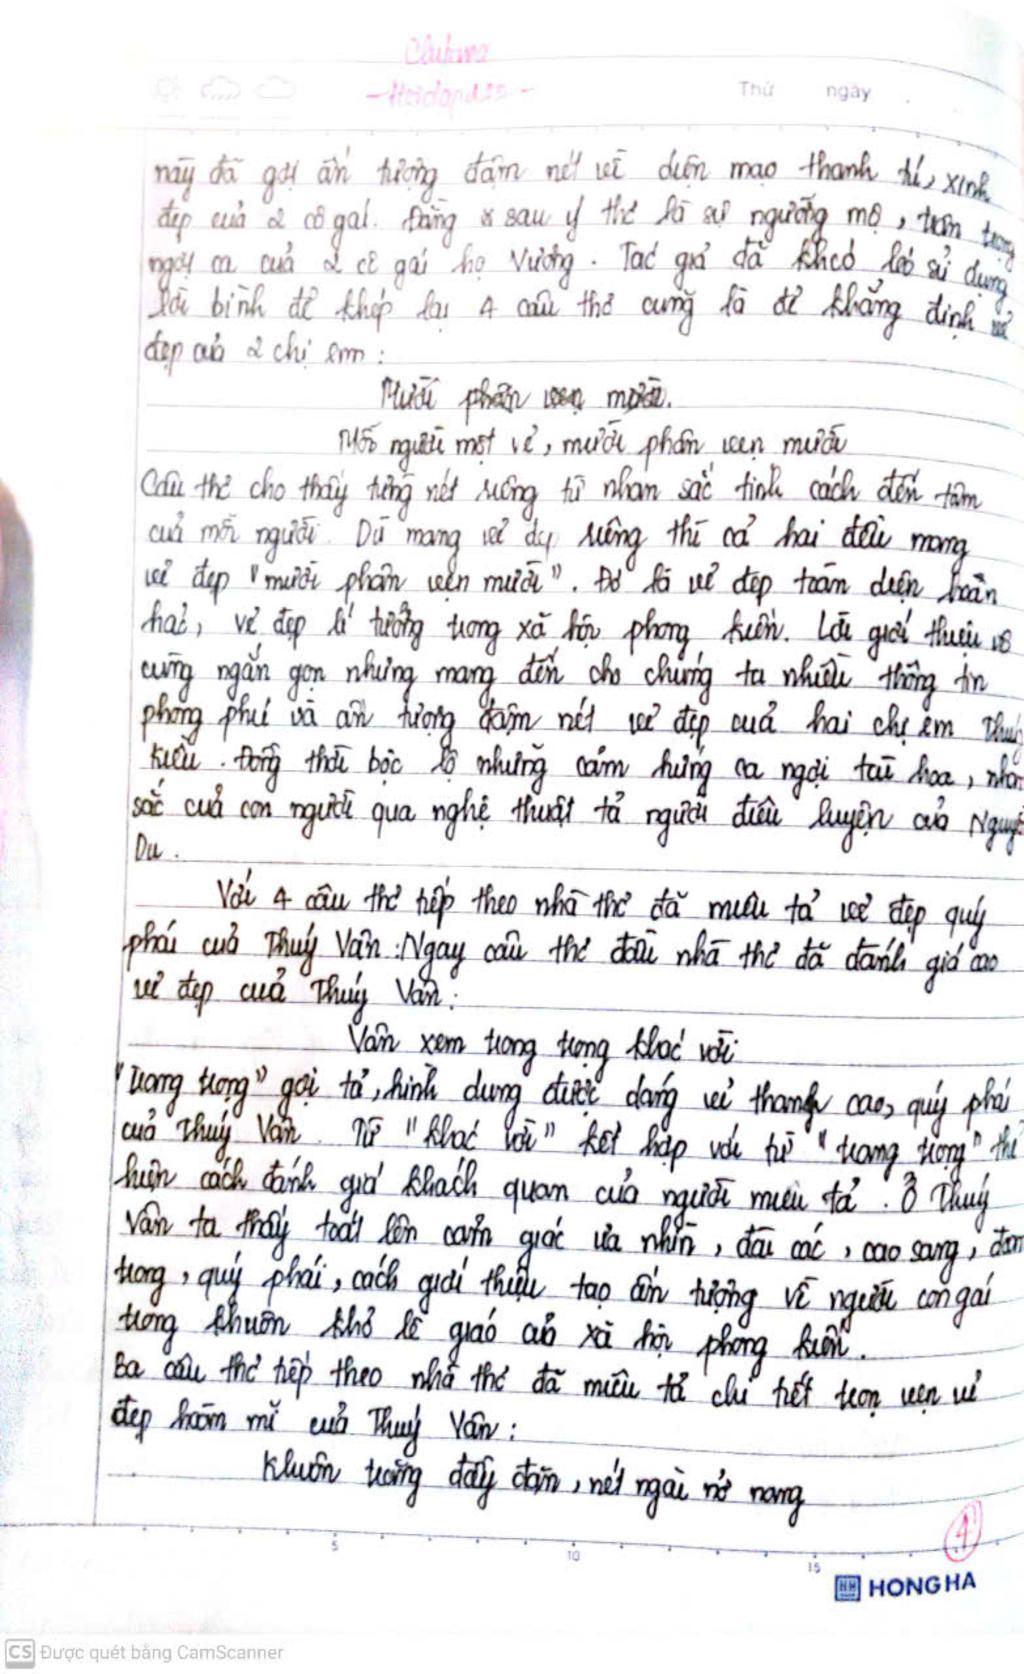 Thứ ngày
- Hoidap225 -
này đã gợi ấn tượng đậm nét về diện mạo thanh tú, xinh
đẹp của 2 cô gái. Đằng sau ý thơ là sự ngưỡng mộ, trân trọng
ngợi ca của 2 cô gái họ Vương. Tác giả đã khéo léo sử dụng
lời bình để khép lại 4 câu thơ cũng là để khẳng định vẻ
đẹp của 2 chị em:
Mười phân vẹn mười.
Mỗi người một vẻ, mười phân vẹn mười
Câu thơ cho thấy từng nét riêng từ nhan sắc tính cách đến tâm
của mỗi người. Dù mang vẻ đẹp riêng thì cả hai đều mang
vẻ đẹp "mười phân vẹn mười". Đó là vẻ đẹp toàn diện hoàn
hảo, vẻ đẹp lí tưởng trong xã hội phong kiến. Lời giới thiệu vô
cùng ngắn gọn nhưng mang đến cho chúng ta nhiều thông tin
phong phú và ấn tượng đậm nét vẻ đẹp của hai chị em Thuý
Kiều. Đồng thời bộc lộ những cảm hứng ca ngợi tài hoa, nhan
sắc của con người qua nghệ thuật tả người điêu luyện của Nguyễn
Du.
Với 4 câu thơ tiếp theo nhà thơ đã miêu tả vẻ đẹp quý
phái của Thuý Vân: Ngay câu thơ đầu nhà thơ đã đánh giá cao
vẻ đẹp của Thuý Vân:
Vân xem trang trọng khác vời
"Trang trọng" gợi tả, hình dung được dáng vẻ thanh cao, quý phái
của Thuý Vân. Từ "khác vời" kết hợp với từ "trang trọng" thể
hiện cách đánh giá khách quan của người miêu tả. Ở Thuý
Vân ta thấy toát lên cảm giác ưa nhìn, đài các, cao sang, đoan
trang, quý phái, cách giới thiệu tạo ấn tượng về người con gái
trong khuôn khổ lễ giáo của xã hội phong kiến.
Ba câu thơ tiếp theo nhà thơ đã miêu tả chi tiết trọn vẹn vẻ
đẹp hoàn mĩ của Thuý Vân:
Khuôn trăng đầy đặn, nét ngài nở nang
4
5 10 15
HONG HA
CS Được quét bằng CamScanner